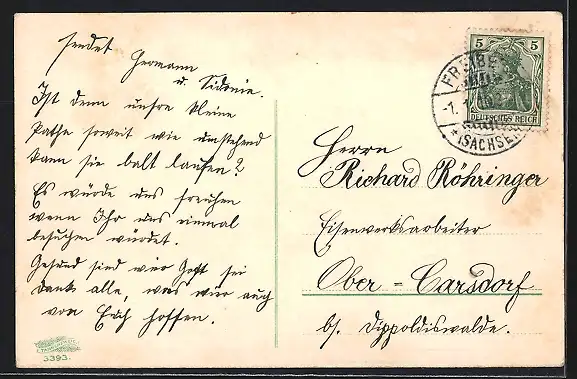 sendet Hermann
u. Sidonie.
Ist denn unsre kleine
Pathe soweit wie umstehend
kann sie balt laufen?
Es würde uns freuhen
wenn Ihr uns einmal
besuchen würdet.
Gesund sind wier Gott sei
Dank alle, was wier auch
von Euch hoffen.
3393.
5 5
DEUTSCHES REICH
FREIBE
-1.1
* (SACHSEN
Herrn
Richard Röhringer
Eisenwerksarbeiter
Ober-Carsdorf
bs. Dippoldiswalde.